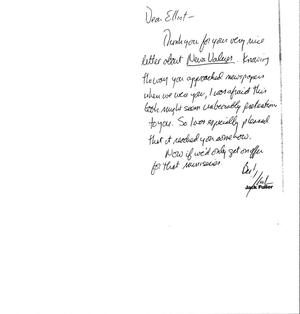 Dear Elliot –
Thank you for your very nice
letter about News Values. Knowing
the way you approached newspapers
when we were you, I was afraid this
book might seem unbearably
to you. So I was especially pleased
that it reached you somehow.
Now if we'd only get an offer
for that
Best,
Jack
Jack Fuller